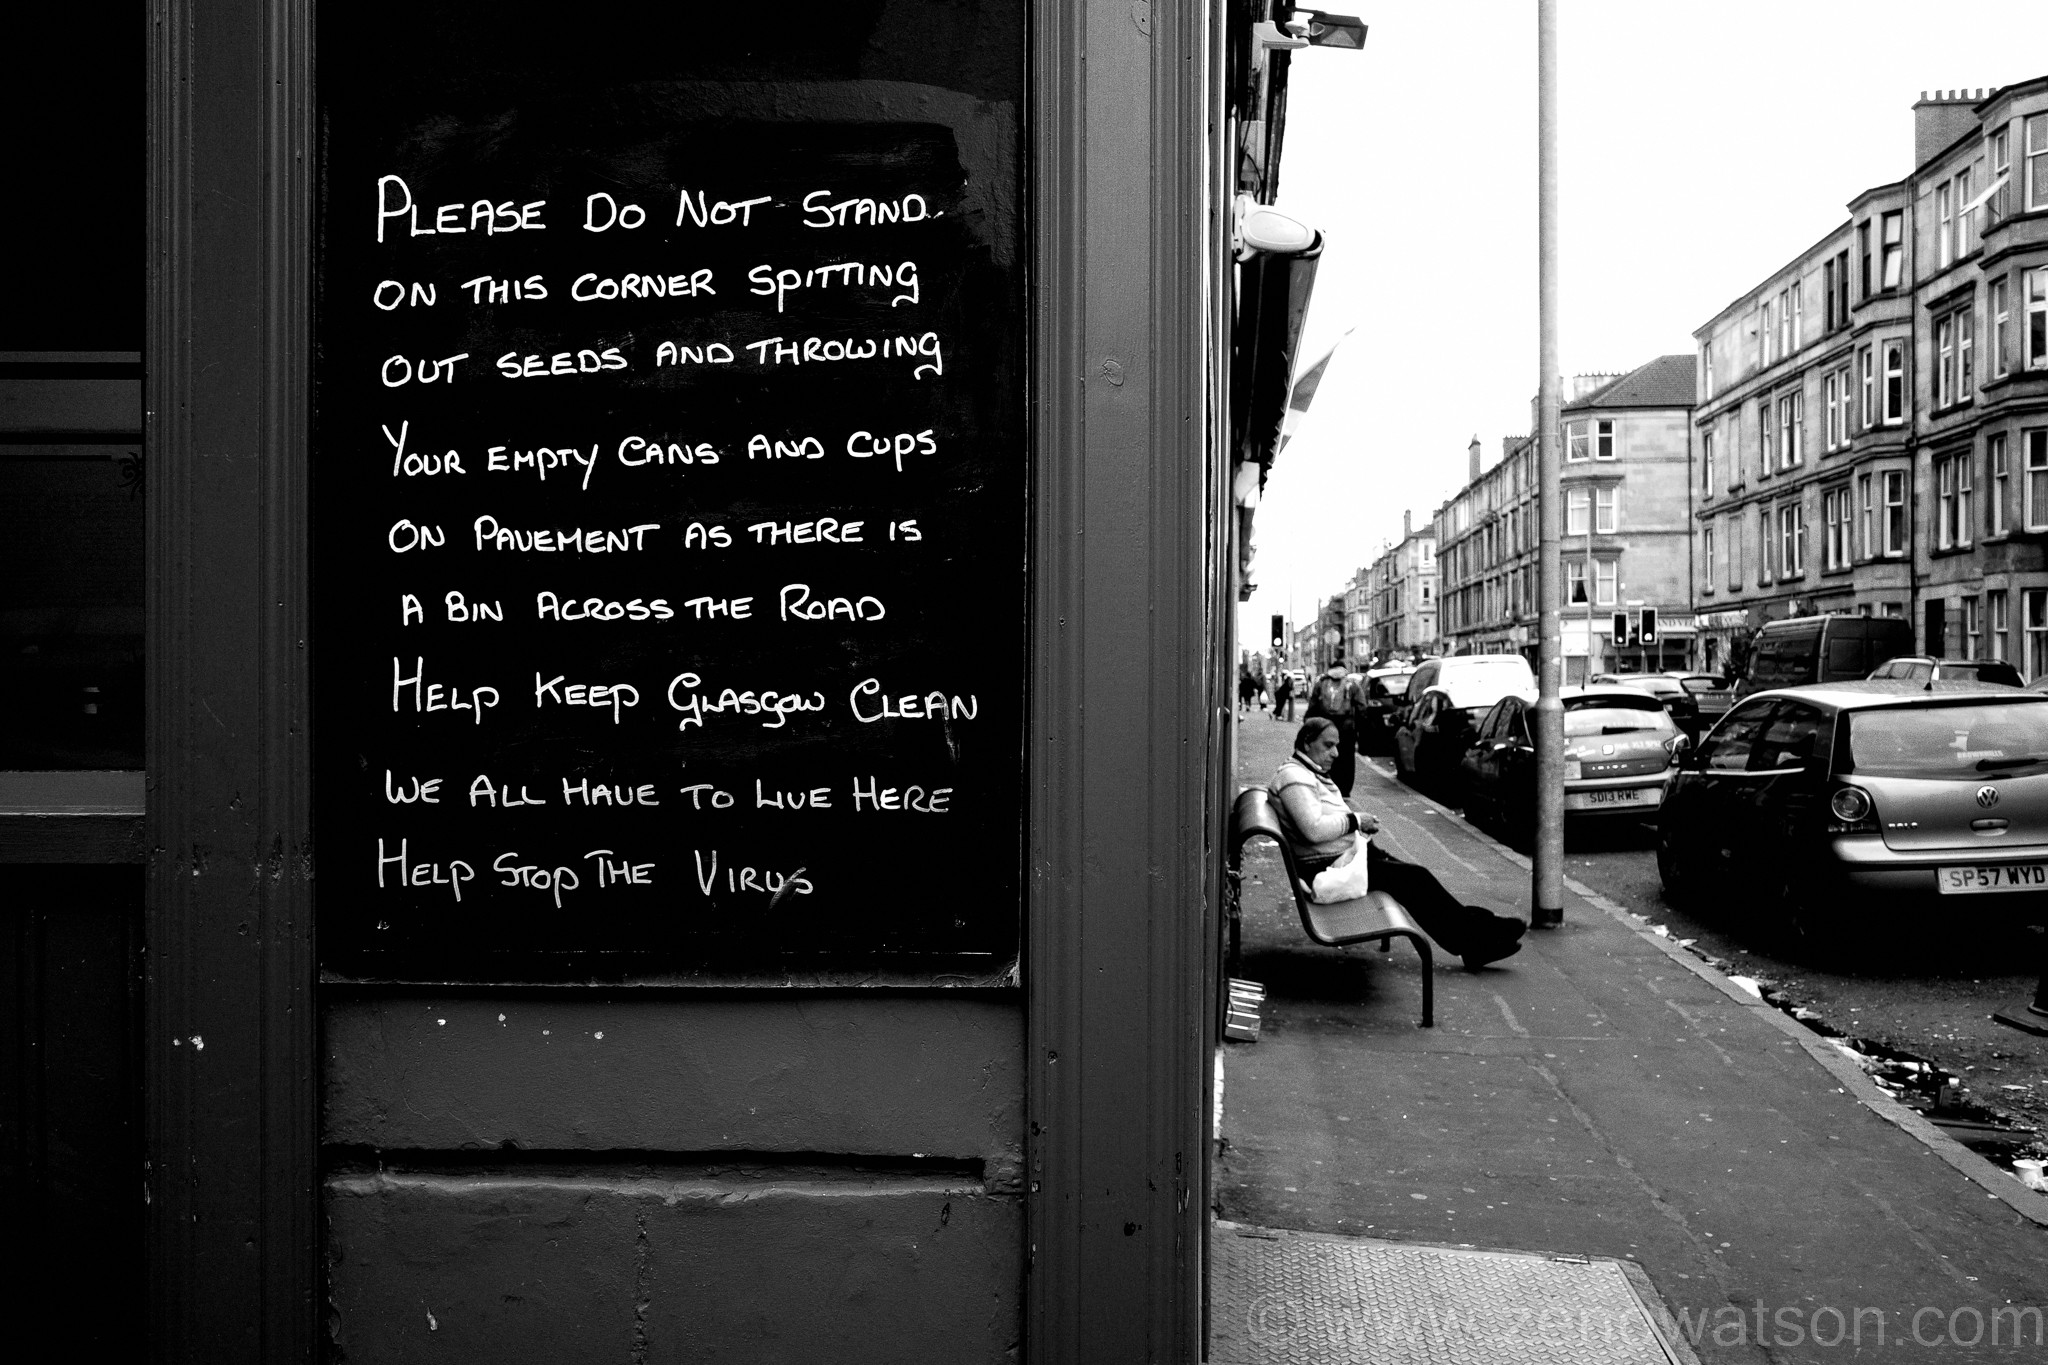 PLEASE DO NOT STAND
ON THIS CORNER SPITTING
OUT SEEDS AND THROWING
YOUR EMPTY CANS AND CUPS
ON PAVEMENT AS THERE IS
A BIN ACROSS THE ROAD
HELP KEEP GLASGOW CLEAN
WE ALL HAVE TO LIVE HERE
HELP STOP THE VIRUS
AND VEG
SD13 RWE
POLO
SP57 WYD
© www.zenowatson.com